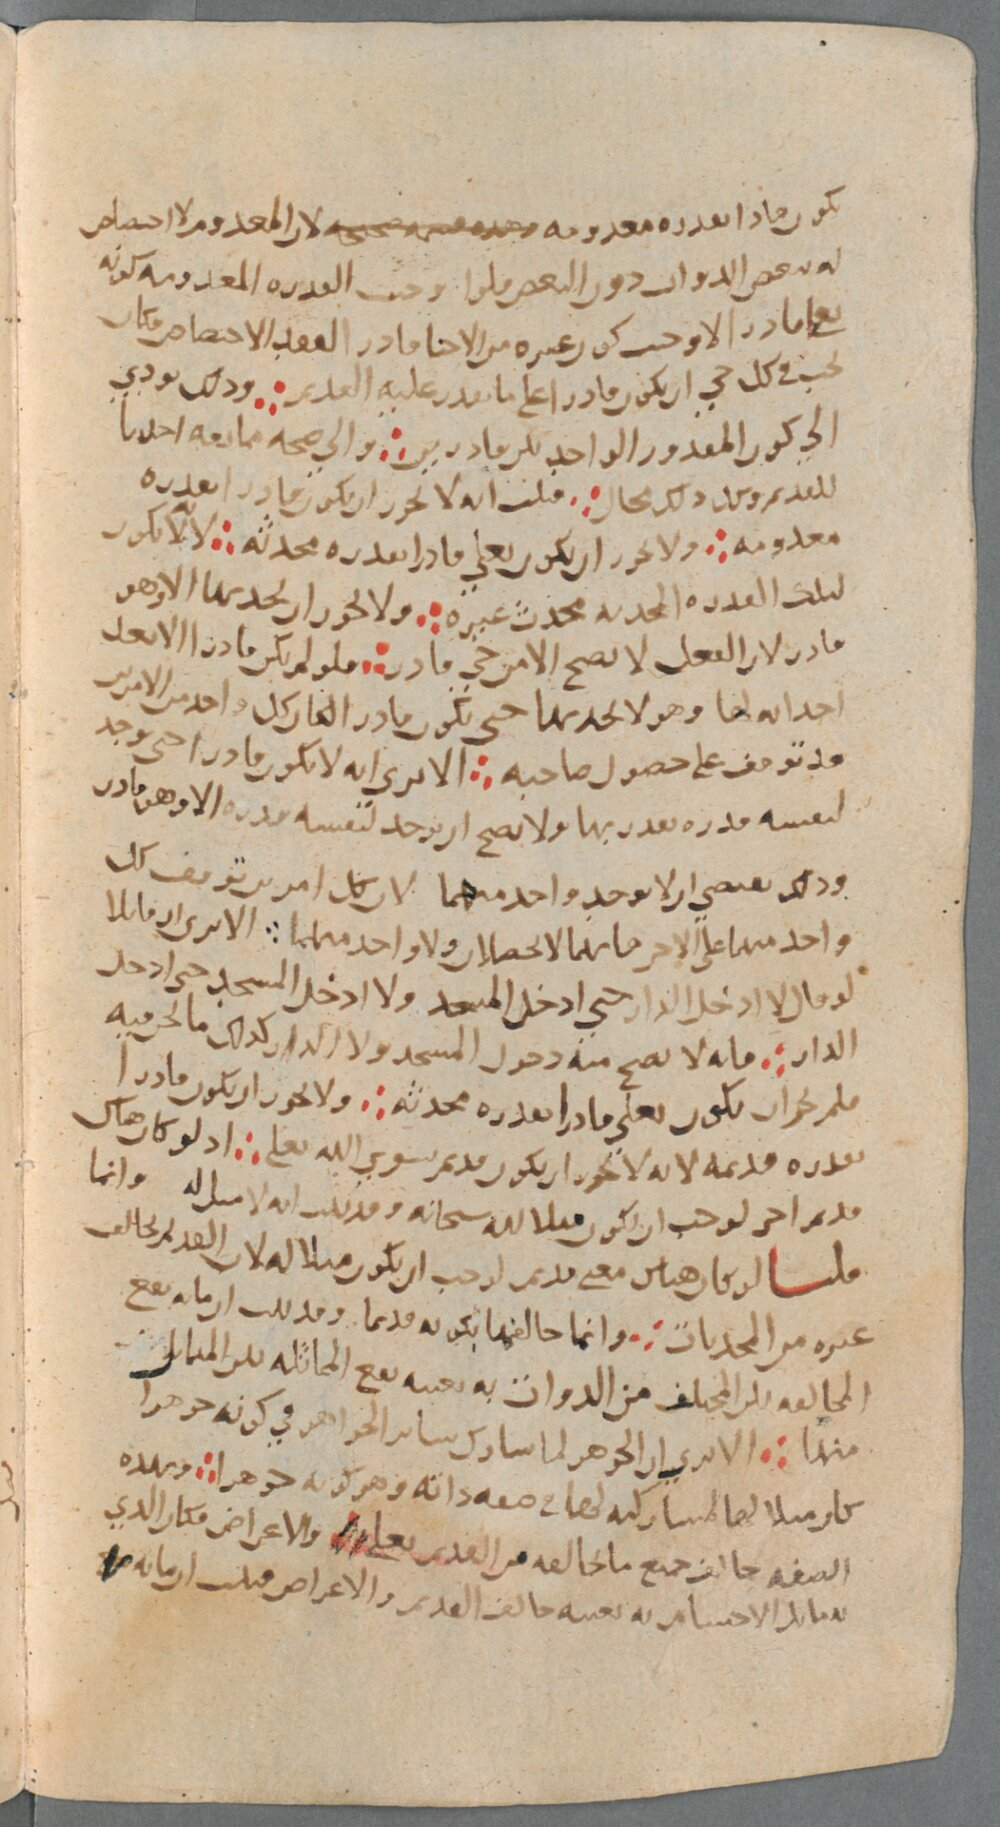 يكون قادرا بقدره معدومه لان المعدوم لا اختصاص
له ببعض الذوات دون البعض فلو اوجبت القدره المعدومه كونه
تعلى قادرا لاوجبت كون غيره من الاحيا قادرا لفقد الاختصاص فكان
يجب في كل حي ان يكون قادرا على ما يقدر عليه القديم ∴ وذلك يودي
الى كون المقدور الواحد بين قادرين ∴ والى صحه ممانعه احدنا
للقديم وكل ذلك محال ∴ فثبت انه لا يجوز ان يكون قادرا بقدره
معدومه ∴ ولا يجوز ان يكون تعلى قادرا بقدره محدثه ∴ لانه لا يكون
لتلك القدره المحدثه محدث غيره ∴ ولا يجوز ان يحدثها الا وهو
قادر لان الفعل لا يصح الا من حي قادر ∴ فلو لم يكن قادرا الا بعد
احداثه لها وهو لا يحدثها حتى يكون قادرا لكان كل واحد من الامرين
قد توقف على حصول صاحبه ∴ الا ترى انه لا يكون قادرا حتى يوجد
لنفسه قدره يقدر بها ولا يصح ان يوجد لنفسه قدره الا وهو قادر
وذلك يقتضي ان لا يوجد واحد منهما لان كل امرين توقف كل
واحد منهما على الاخر فانهما لا يحصلان ولا واحد منهما ∴ الا ترى ان قايلا
لو قال لا ادخل الدار حتى ادخل المسجد ولا ادخل المسجد حتى ادخل
الدار ∴ فانه لا يصح منه دخول المسجد ولا الدار كذلك ما نحن فيه
فلم يجز ان يكون تعلى قادرا بقدره محدثه ∴ ولا يجوز ان يكون قادرا
بقدره قديمه لانه لا يجوز ان يكون قديم سوى الله تعلى ∴ اذ لو كان هناك
قديم اخر لوجب ان يكون مثلا لله سبحانه وقد ثبت انه لا مثل له وانما
قلنا لو كان هناك معه قديم لوجب ان يكون مثلا له لان القديم يخالف
غيره من المحدثات ∴ وانما خالفها بكونه قديما وقد ثبت ان ما به تقع
المخالفه بين المختلف من الذوات به بعينه تقع المماثله بين المتماثل
منها ∴ الا ترى ان الجوهر لما شارك ساير الجواهر في كونه جوهرا
كان مثلا لها لمشاركته لها في صفه ذاته وهو كونه جوهرا ∴ وبهذه
الصفه خالف جميع ما يخالفه من القديم تعلى والاعراض فكان الذي
به ماثل الاجسام به بعينه خالف القديم والاعراض فثبت ان ما به